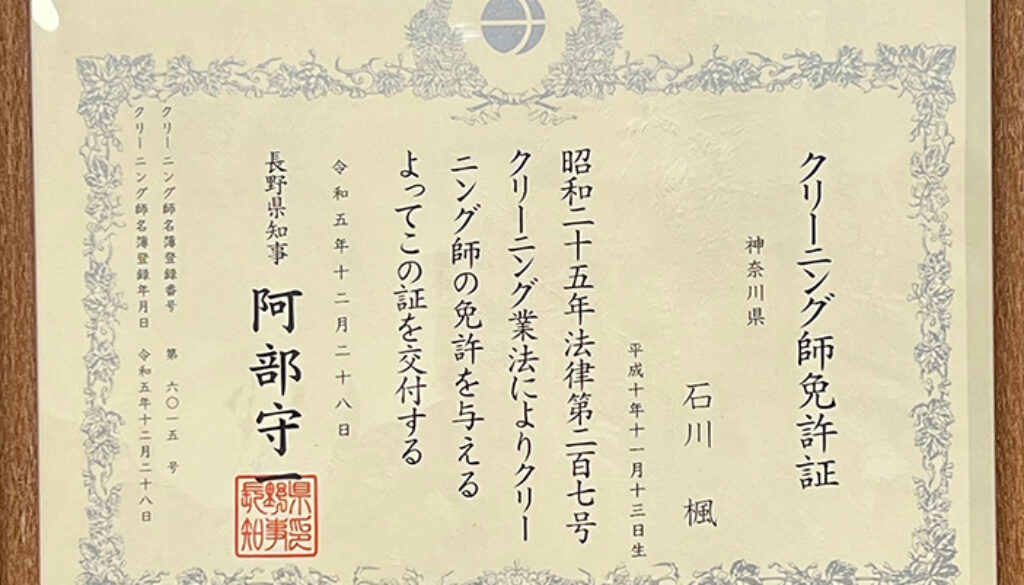 クリーニング師免許証
神奈川県
石川 楓
平成十年十一月十三日生
昭和二十五年法律第二百七号
クリーニング業法によりクリー
ニング師の免許を与える
よってこの証を交付する
令和五年十二月二十八日
長野県知事 阿部守一
長野県知事印
クリーニング師名簿登録番号 第 六〇一五 号
クリーニング師名簿登録年月日 令和五年十二月二十八日